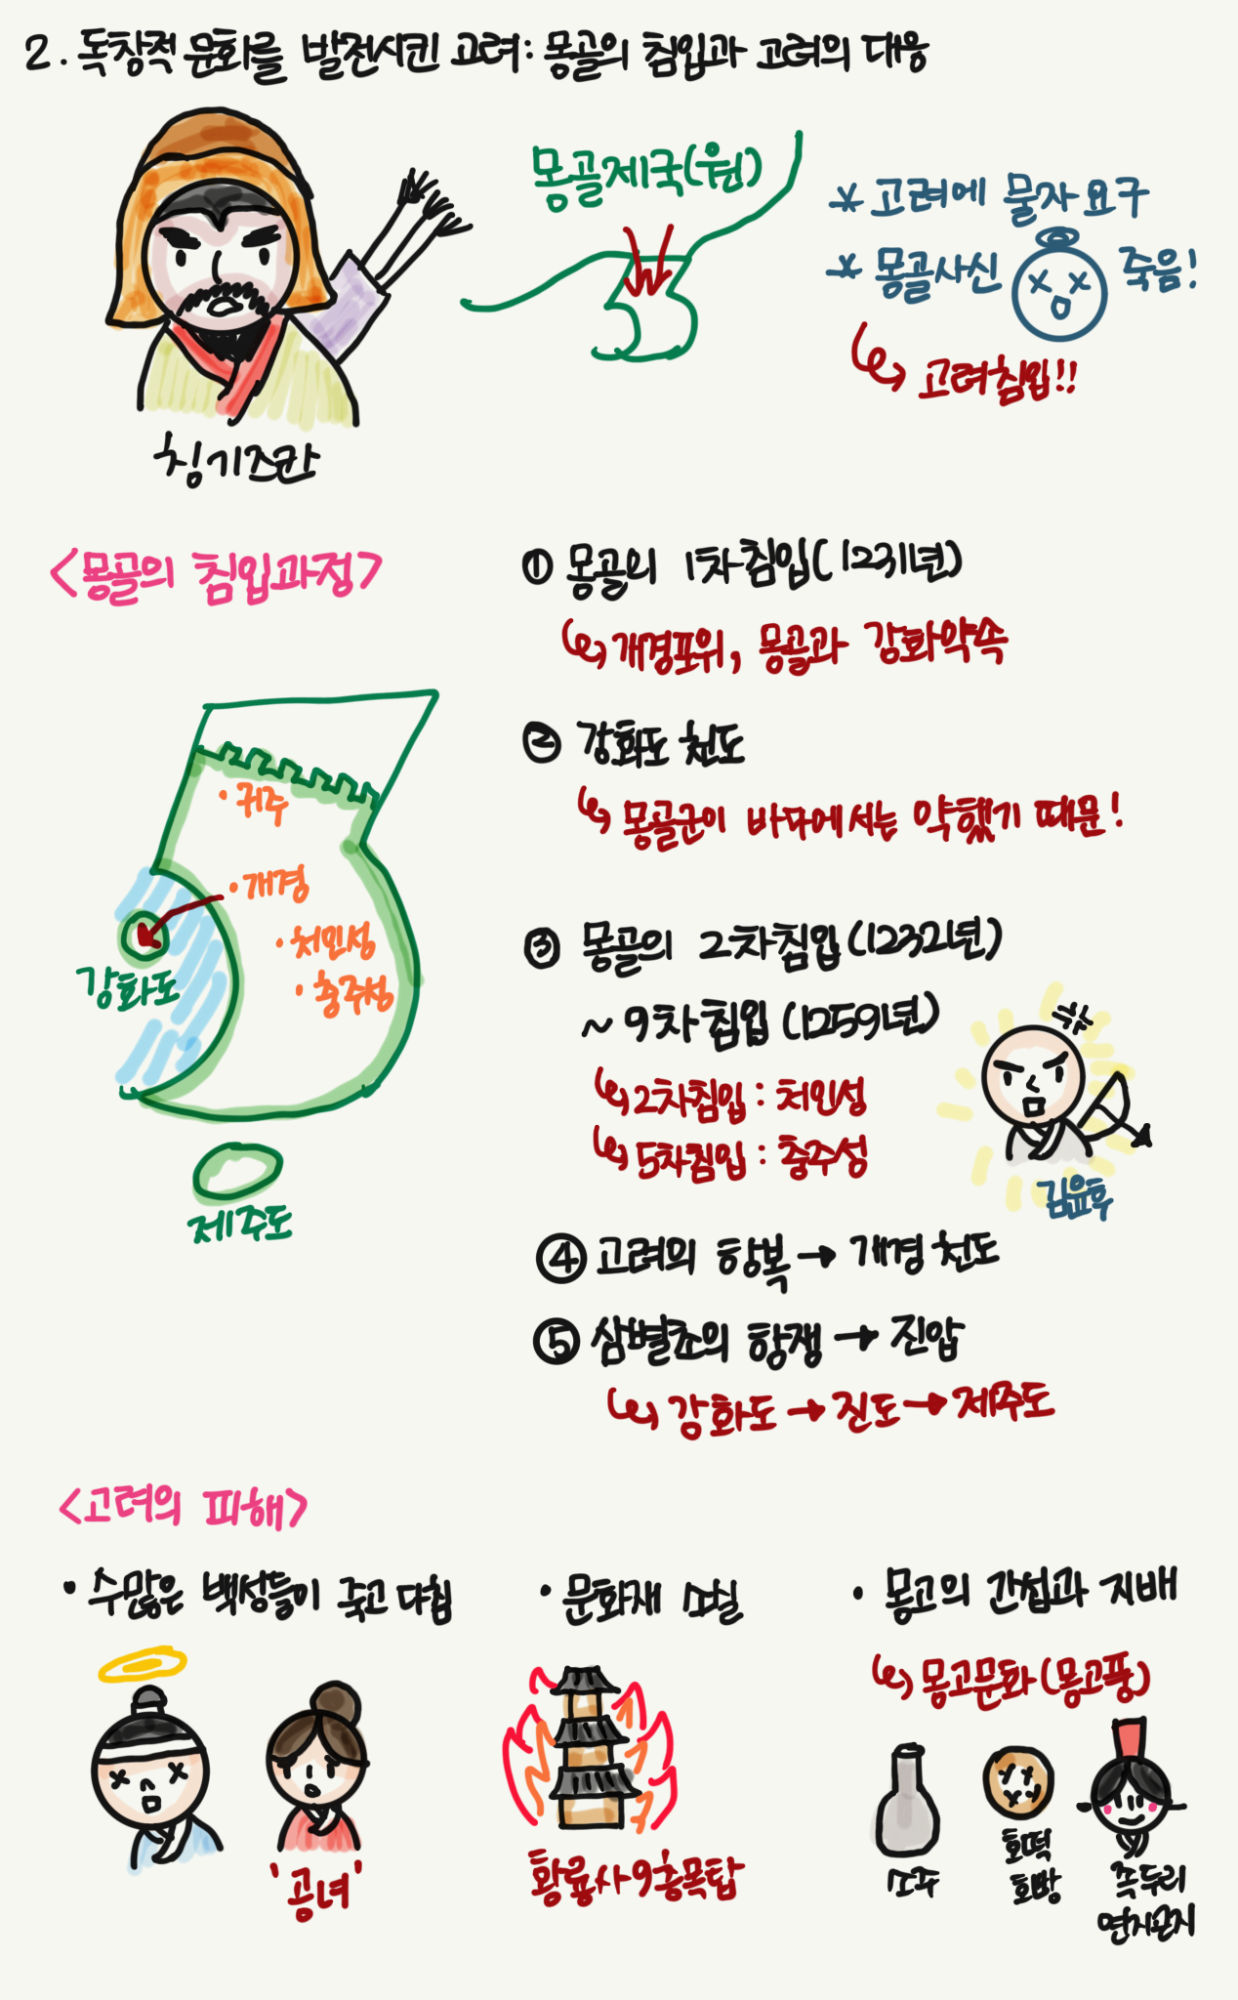 2. 독창적 문화를 발전시킨 고려: 몽골의 침입과 고려의 대응
몽골제국(원)
* 고려에 물자 요구
* 몽골사신 죽음!
고려침입!!
칭기즈칸
<몽골의 침입과정>
① 몽골의 1차침입(1231년)
개경포위, 몽골과 강화약속
② 강화도 천도
몽골군이 바다에서는 약했기 때문!
③ 몽골의 2차침입(1232년)
~ 9차침입(1259년)
2차침입 : 처인성
5차침입 : 충주성
김윤후
④ 고려의 항복 → 개경 천도
⑤ 삼별초의 항쟁 → 진압
강화도 → 진도 → 제주도
· 귀주
· 개경
· 처인성
· 충주성
강화도
제주도
<고려의 피해>
· 수많은 백성들이 죽고 다침
'공녀'
· 문화재 소실
황룡사9층목탑
· 몽고의 간섭과 지배
몽고문화(몽고풍)
소주
호떡
호빵
족두리
연지곤지